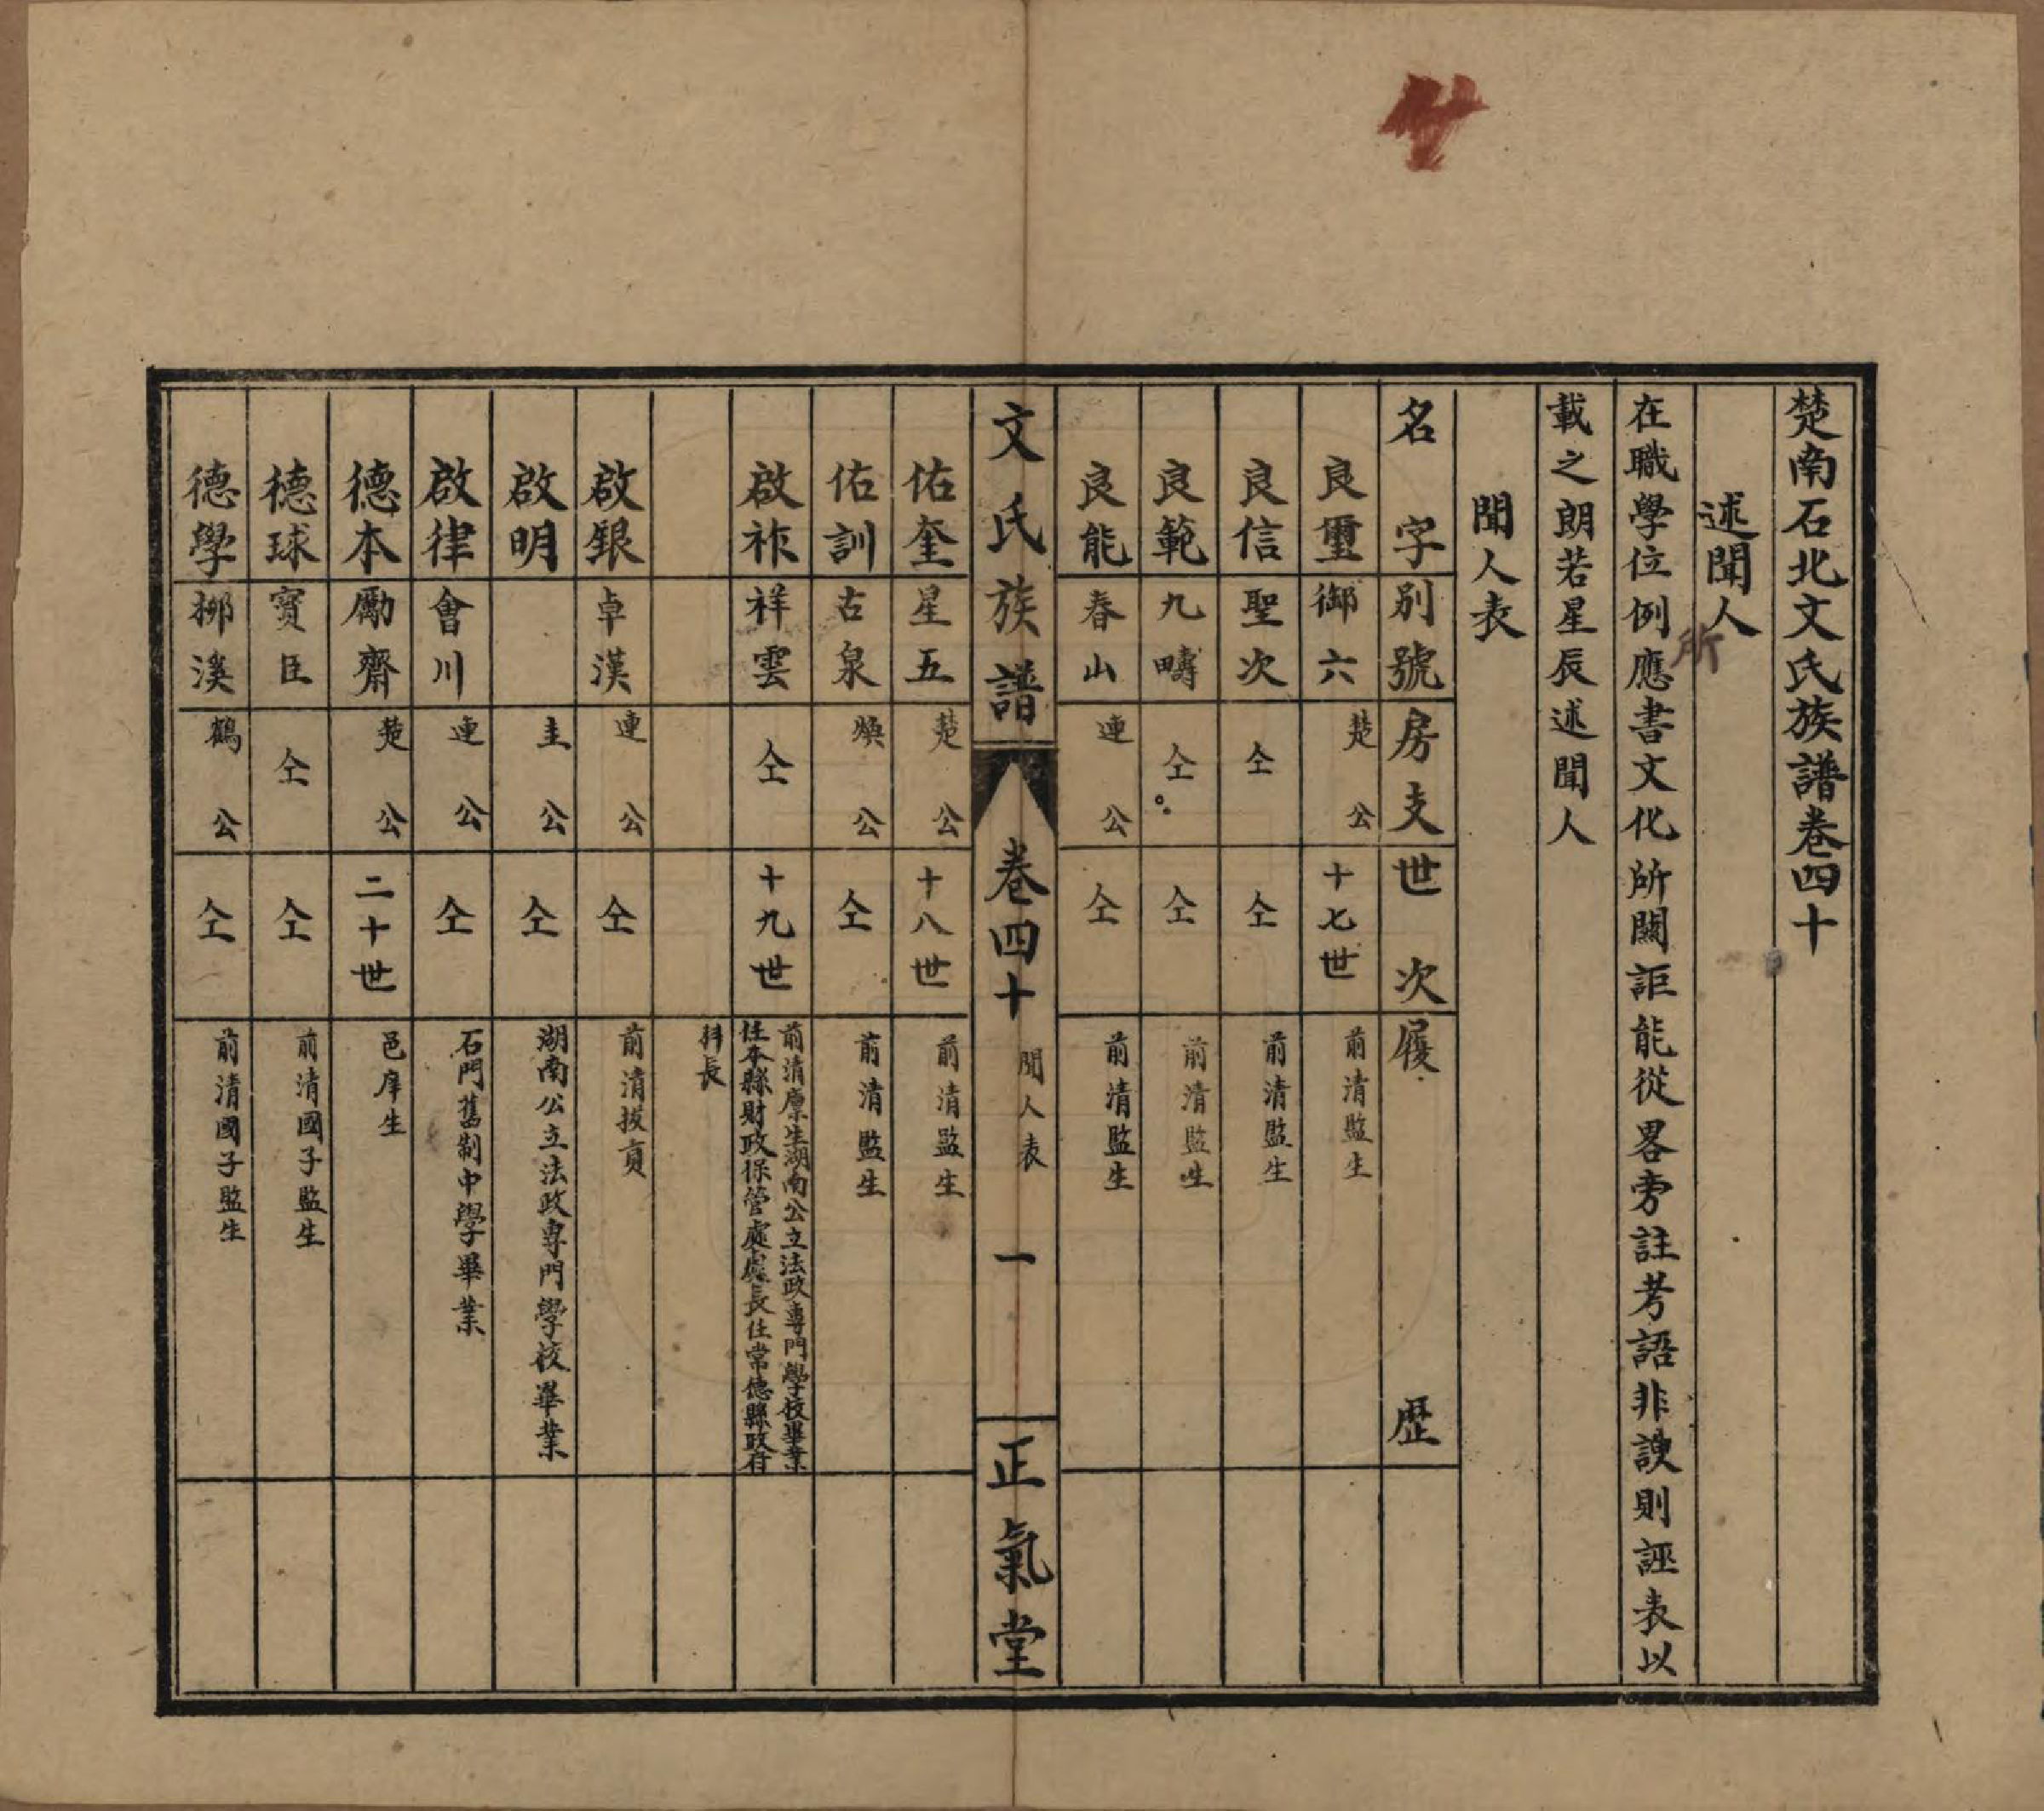 楚南石北文氏族譜卷四十
述聞人
在職學位例應書文化所關詎能從畧旁註考語非諛則誣表以
所
載之朗若星辰述聞人
聞人表
名字 別號 房支 世次 履歷
良璽 御六 楚公 十七世 前清監生
良信 聖次 仝 仝 前清監生
良範 九疇 仝 仝 前清監生
良能 春山 連公 仝 前清監生
文氏族譜 卷四十 聞人表 一 正氣堂
佑奎 星五 楚公 十八世 前清監生
佑訓 古泉 煥公 仝 前清監生
啟祚 祥雲 仝 十九世 前清廩生湖南公立法政專門學校畢業
任本縣財政保管處處長任常德縣政府
科長
啟銀 卓漢 連公 仝 前清拔貢
啟明 圭公 仝 湖南公立法政專門學校畢業
啟律 會川 連公 仝 石門舊制中學畢業
德本 勵齋 楚公 二十世 邑庠生
德球 寶臣 仝 仝 前清國子監生
德學 挪溪 鶴公 仝 前清國子監生